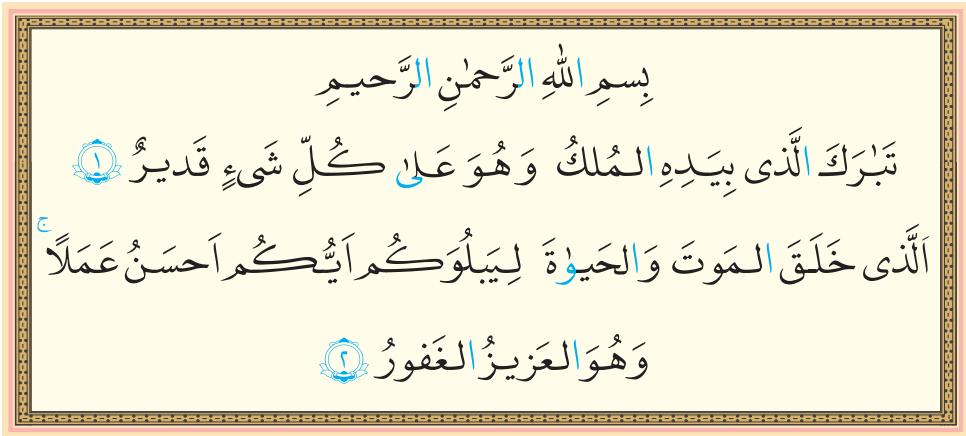 بِسمِ اللّٰهِ الرَّحمٰنِ الرَّحیمِ
تَبٰرَکَ الَّذی بِیَدِهِ المُلکُ وَ هُوَ عَلیٰ کُلِّ شَیءٍ قَدیرٌ ۱
اَلَّذی خَلَقَ المَوتَ وَ الحَیوٰةَ لِیَبلُوَکُم اَیُّکُم اَحسَنُ عَمَلًا ۚ
وَ هُوَ العَزیزُ الغَفورُ ۲